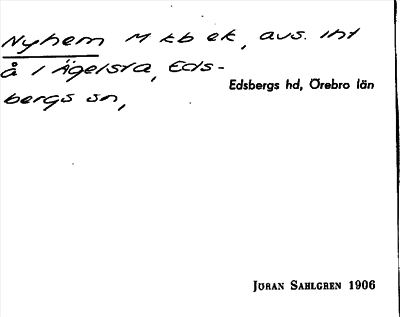 Nyhem M tb ek, avs. int
å 1 Ägelsta, Eds-
bergs sn,
Edsbergs hd, Örebro län
JÖRAN SAHLGREN 1906